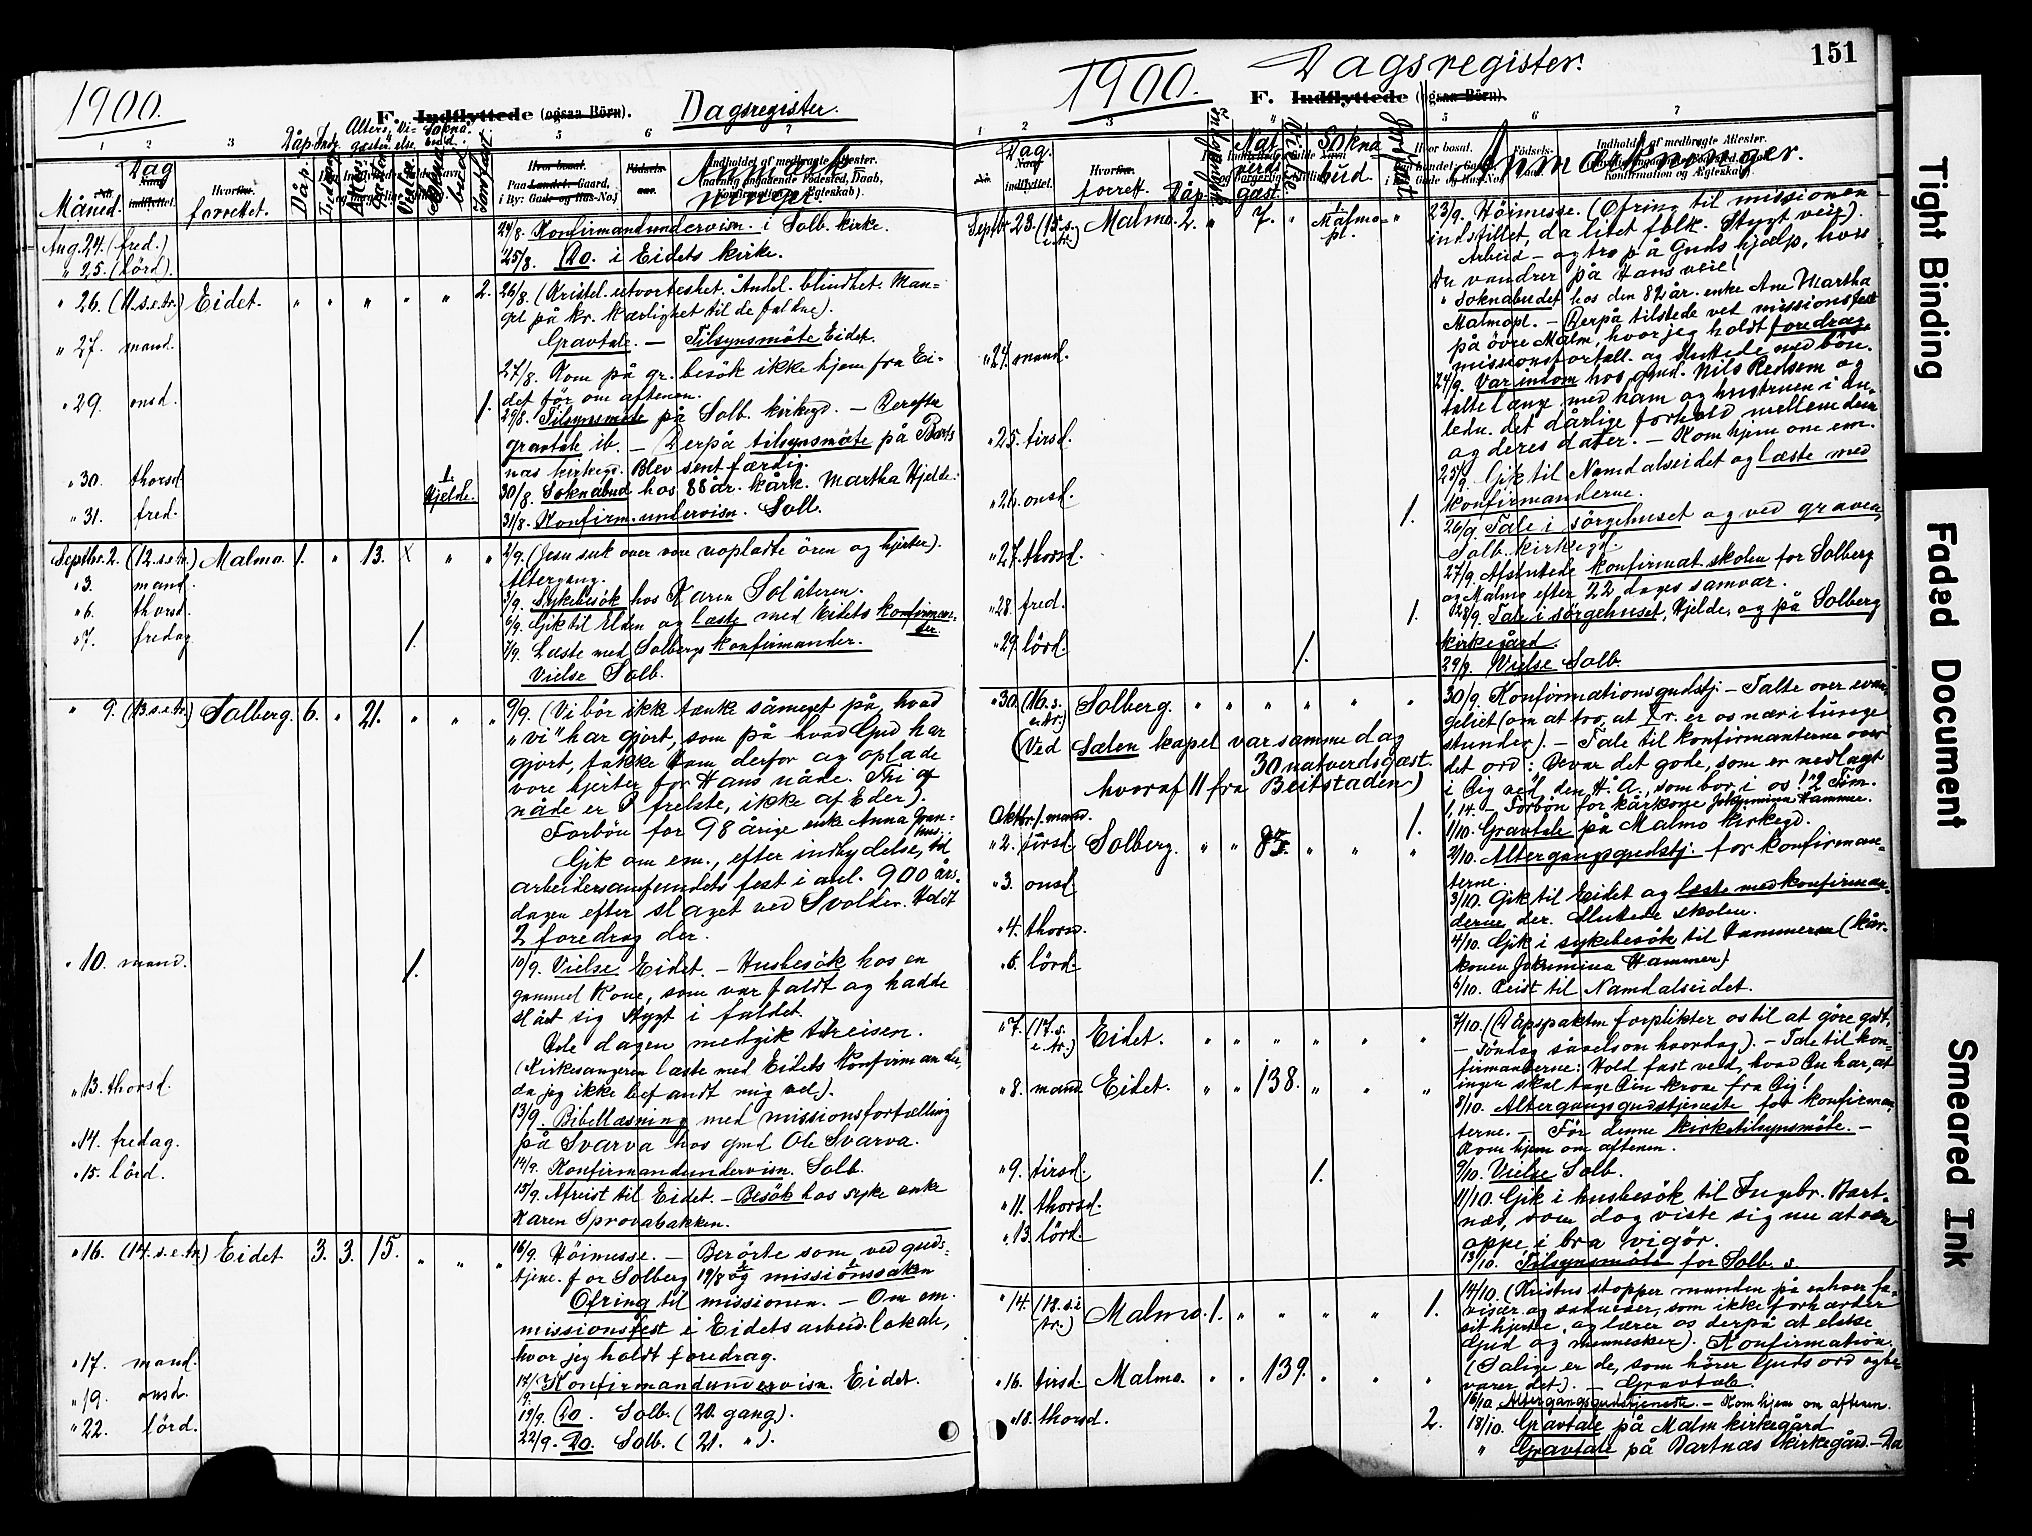 1900.
F. Indflyttede (ogsaa Börn).
Dagsregister.
1 2 3 5 6 7
Måned. Dag Hvor forrettet. Dåp. Alters gæster. Vielse Soknabud. Jordfæst.
Anmærkninger.
Aug. 24. (fred.) 24/8. Konfirmandundervisn. i Solb. kirke.
" 25. (lörd). 25/8. Do. i Eidets kirke.
" 26. (11.s.e.tr.) Eidet. " " " " " 2. 26/8. (Kristel. utvorteshet. Andel. blindhet. Man-
gel på kr. kærlighet til de faldne).
Gravtale. — Tilsynsmöte Eidet.
" 27. mand. 27/8. Kom på gr. besök ikke hjem fra Ei-
det för om aftenen.
" 29. onsd. 1. 29/8. Tilsynsmöte på Solb. kirkegd. — Derefter
gravtale ib. — Derpå tilsynsmöte på Bart-
næs kirkegd. Blev sent færdig.
" 30. thorsd. 1. Hjelde. 30/8. Soknabud hos 88 år. kårk. Martha Hjelde.
" 31. fred. 31/8. Konfirm. undervisn. Solb.
Septbr. 2. (12.s.e.tr.) Malmo. 1. " 13. " " 2/9. (Jesu suk over vore uopladte ören og hjerter).
Altergang.
" 3. mand. 3/9. Sykebesök hos Karen Solåteren.
" 6. thorsd. 6/9. Gik til Elden og læste med Eidets konfirman-
der.
" 7. fredag 1. 7/9. Læste med Solbergs konfirmander.
Vielse Solb.
" 9. (13.s.e.tr.) Solberg. 6. " 21. " " " 9/9. (Vi bör ikke tænke såmeget på, hvad
"vi" har gjort, som på hvad Gud har
gjort, takke Ham derfor og oplade
vore hjerter for Hans nåde. Thi af
nåde er I frelste, ikke af Eder).
Forbön for 98 årige enke Anna Gran-
hus.
Gik om em., efter indbydelse, til
arbeidersamfundets fest i anl. 900 års-
dagen efter slaget ved Svolder. Holdt
2 foredrag der.
" 10. mand. 1. 10/9. Vielse Eidet. — Husbesök hos en
gammel kone, som var faldt og hadde
slået sig stygt i faldet.
Hele dagen medgik til reisen.
(Kirkesangeren læste med Eidets konfirmander,
da jeg ikke befandt mig vel).
" 13. thorsd. 13/9. Bibellæsning med missionsfortælling
på Svarva hos gmd Ole Svarva.
" 14. fredag. 14/9. Konfirmandundervisn. Solb.
" 15. lörd. 15/9. Afreist til Eidet. — Besök hos syke enke
Karen Sprovabakken.
" 16. (14.s.e.tr.) Eidet 3. 3. 15. " " " 16/9. Höimesse. — Berörte som ved guds-
tjene. for Solberg 19/8 og missionssaken
Ofring til missionen. — Om em.
missionsfest i Eidets arbeid. lokale,
hvor jeg holdt foredrag.
" 17. mand. 17/9. Konfirmandundervisn. Eidet.
" 19. onsd. 19/9. Do. Solb. (20. gang).
" 22. lörd. 22/9. Do. Solb. (21. ").
151
1900. Dagsregister.
F. Indflyttede (ogsaa Börn).
1 2 3 5 6 7
Dag. Hvor forrett. Dåp. Natverdgæst. Vielse Soknabud. Jordfæst.
Anmærkninger.
Septbr 23. (15.s.e.tr.) Malmo. 2. " 7. " 1. Malmopl. " 23/9. Höimesse. (Ofring til missionen
indstillet, da litet folk. Stygt veir).
Arbeid — og tro på Guds hjælp, hvis
Du vandrer på Hans veie!
" Soknabudet hos den 82 år. enke Ane Martha
Malmopl. — Derpå tilstede vet missionsfest
på övre Malm, hvor jeg holdt foredrag
missionsfortæll. og sluttede med bön.
" 24. mand. 24/9. Var indom hos gmd. Nils Redsem og
talte længe med ham og hustruen i An-
ledn. det dårlige forhold mellem dem
og deres dater. — Kom hjem om em.
" 25. tirsd. 25/9. Gik til Namdalseidet og læste med
konfirmanderne.
" 26. onsd. 1. 26/9. Tale i sörgehuset og ved graven,
Solb. kirkegd.
" 27. thorsd. 27/9. Afsluttede konfirmat. skolen for Solberg
og Malmo efter 22 dages samvær.
" 28. fred. 1. 28/9. Tale i sörgehuset, Hjelde, og på Solberg
kirkegård.
" 29. lörd. 1. 29/9. Vielse Solb.
" 30. (16.s.e.tr.) Solberg. " " " " " " 30/9. Konfirmationsgudstj. — Talte over evan-
geliet (om at tro, at Kr. er os nær i tunge
stunder). — Tale til konfirmanterne over
det ord: Bevar det gode, som er nedlagt
i Dig ved den H. A., som bor i os! 2 Tim.
1,14. — Forbön for kårkone Johannina Hammer.
(Ved Sælen kapel var samme dag
30 natverdsgæst.
hvoraf 11 fra Beitstaden)
Oktbr. 1. mand. 1. 1/10. Gravtale på Malmo kirkegd.
" 2. tirsd Solberg. " " " " " 2/10. Altergangsgudstj. for konfirman-
terne.
" 3. onsd 3/10. Gik til Eidet og læste med konfirman-
derne der. Sluttede skolen.
" 4. thorsd. 4/10. Gik i sykebesök til Hammeren (kår-
konen Johannina Hammer)
" 6. lörd. 6/10. Reist til Namdalseidet.
" 7. (17.s.e.tr.) Eidet. " " " " " " 7/10. (Dåpspakten forplikter os til at göre godt,
— söndag såvelsom hverdag). — Tale til kon-
firmanderne: Hold fast ved, hvad Du har, at
ingen skal tage Din krone fra Dig!
" 8. mand. Eidet. " " 138. " " " 8/10. Altergangsgudstjeneste for konfirman-
terne. — För denne kirketilsynsmöte. —
Kom hjem om aftenen.
" 9. tirsd. 1. 9/10. Vielse Solb.
" 11. thorsd. 11/10. Gik i husbesök til Ingebr. Bart-
næs, som dog viste sig nu at være
oppe i bra vigör.
" 13. lörd. 13/10. Tilsynsmöte for Solb. s.
" 14. (18.s.e.tr.) Malmo. 1. " " " " 1. 14/10. (Kristus stopper munden på enhver fa-
risæer og saducæer, som ikke forhærder
sit hjerte, og lærer os derpå at elske
Gud og mennesker). Konfirmation.
(Salige er de, som hörer Guds ord og be-
varer det). — Gravtale.
" 16. tirsd. Malmo. " " 139. " " " 16/10. Altergangsgudstjeneste. — Kom hjem om aftenen.
" 18. thorsd. 2. 18/10. Gravtale på Malm kirkegård
" Gravtale på Bartnæs kirkegård. — Da
Tight Binding
Faded Document
Smeared Ink